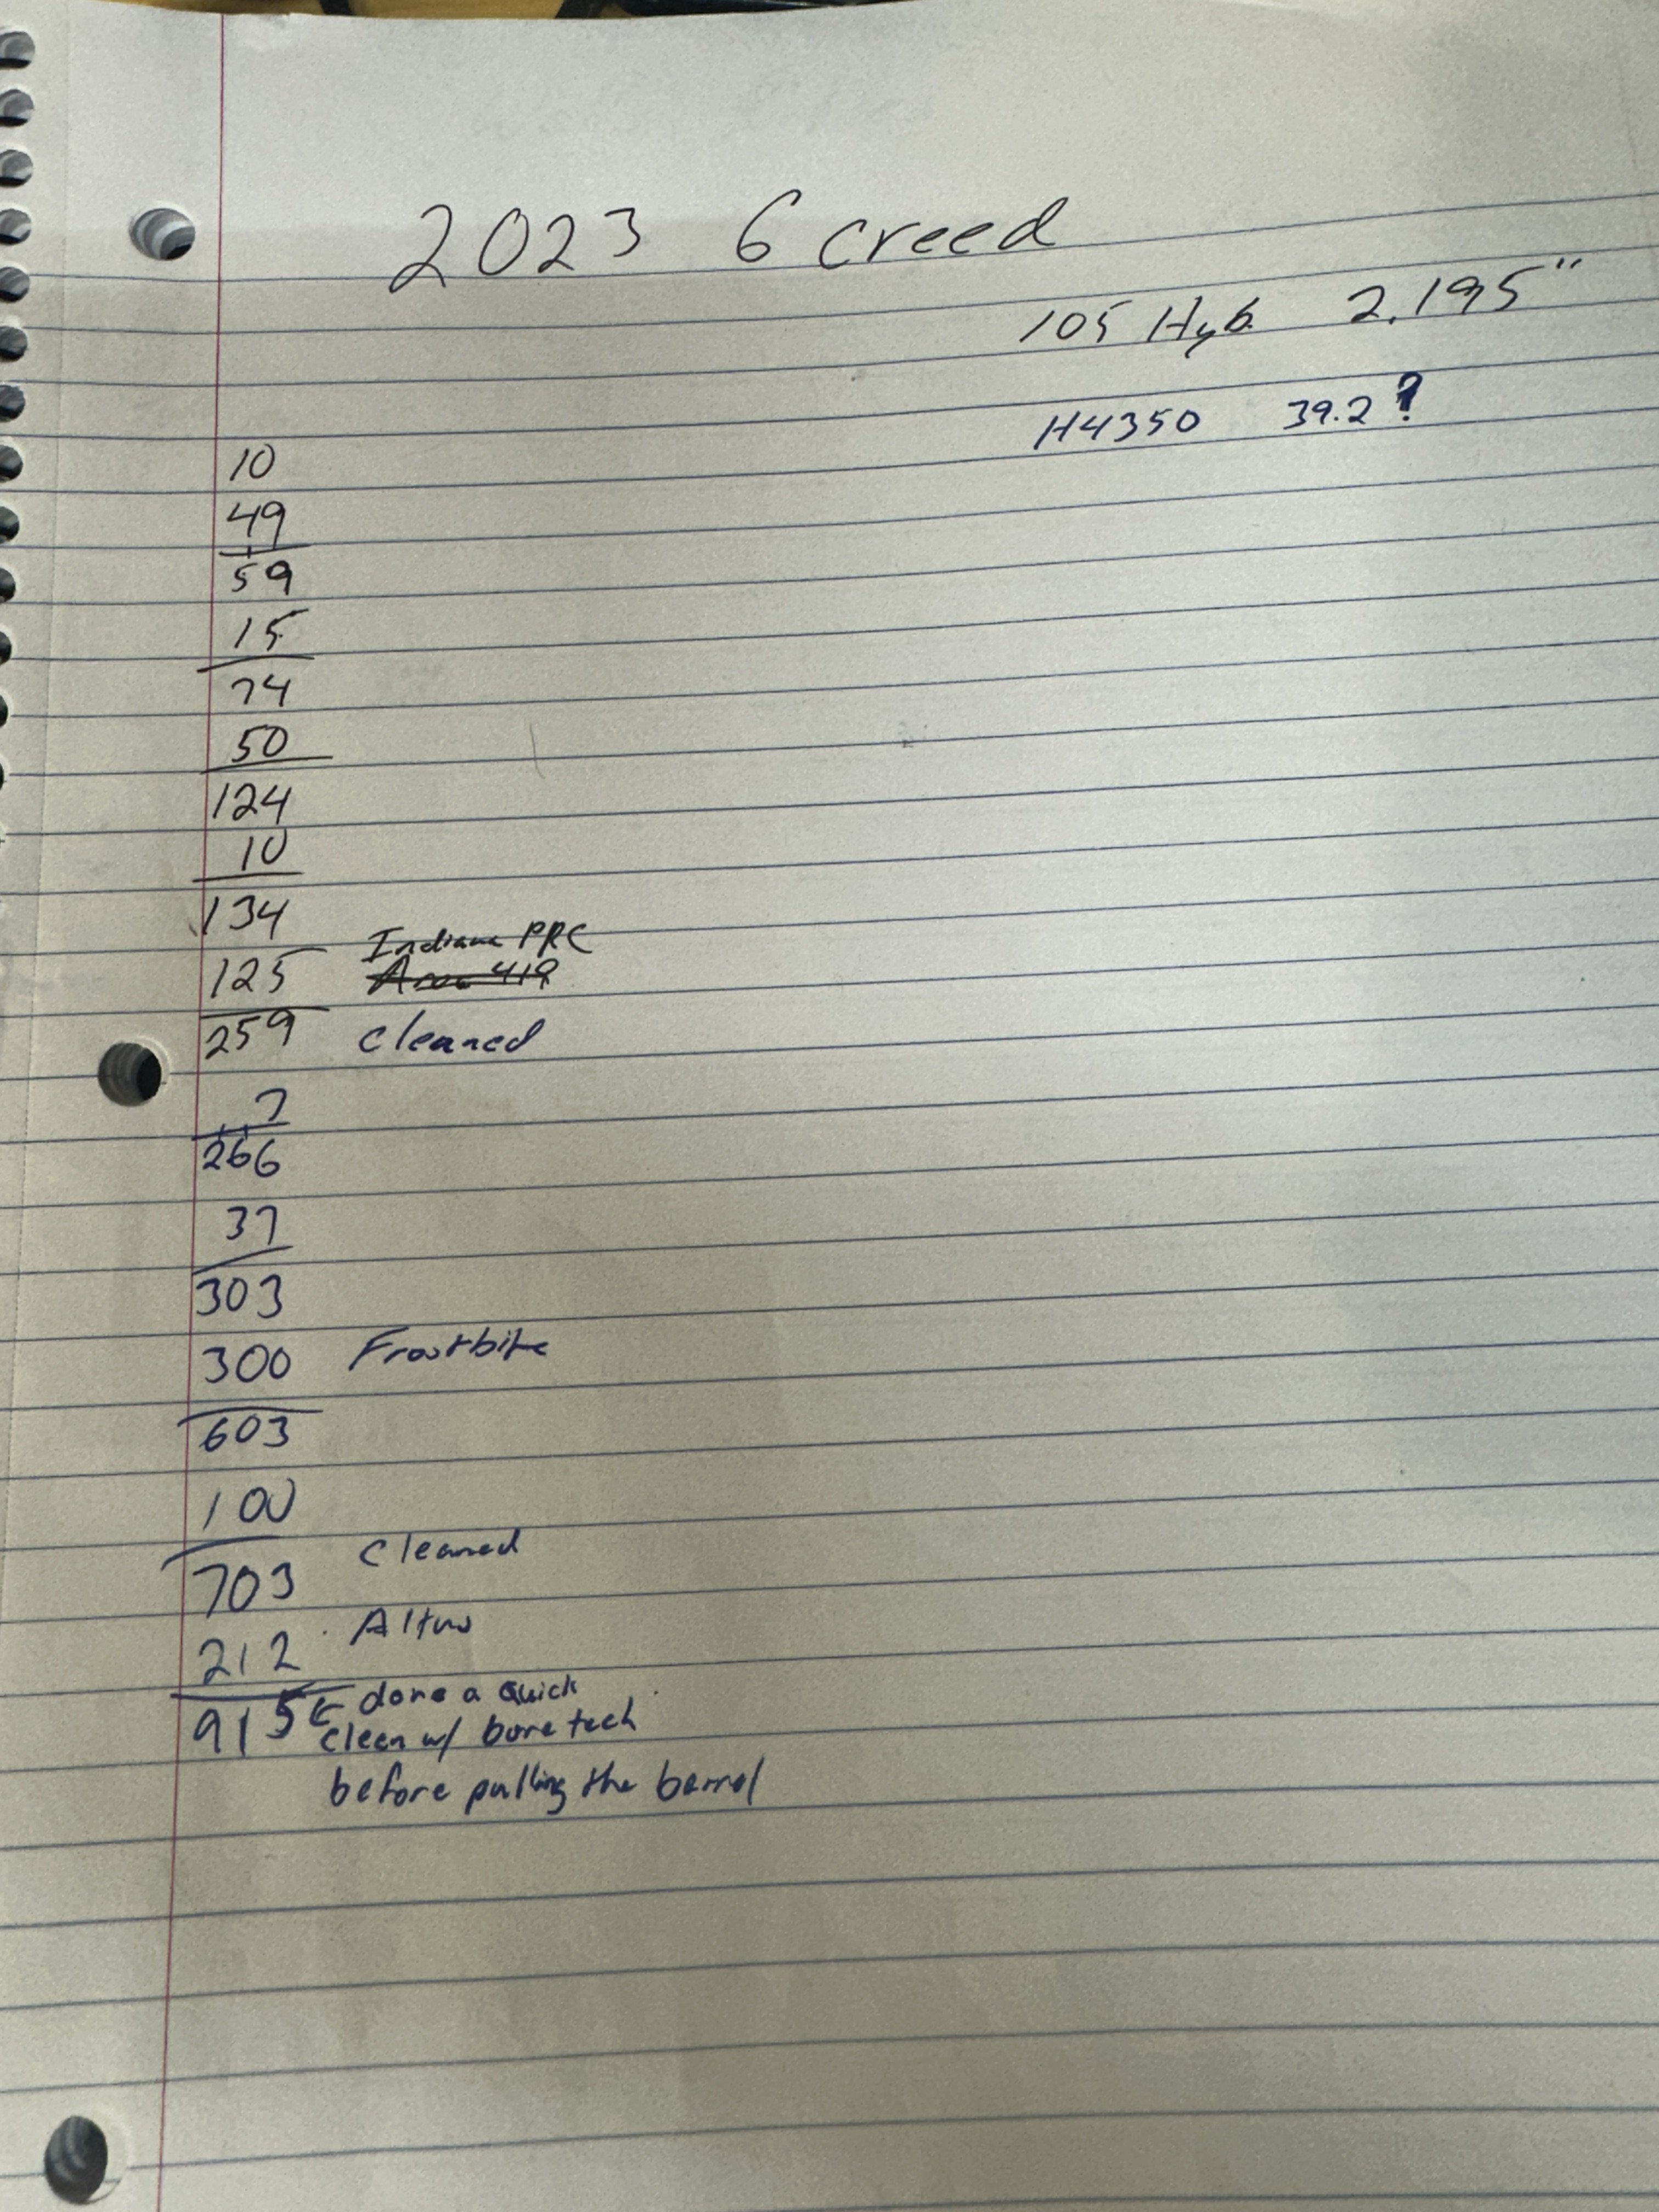 2023 6 creed
105 Hyb 2.195"
H4350 39.2?
10
49
59
15
74
50
124
10
134
Indiana PRC
125 Area 419
259 cleaned
7
266
37
303
300 Frostbite
603
100
cleaned
703
Altus
212
915 ← done a quick
clean w/ bore tech
before pulling the barrel